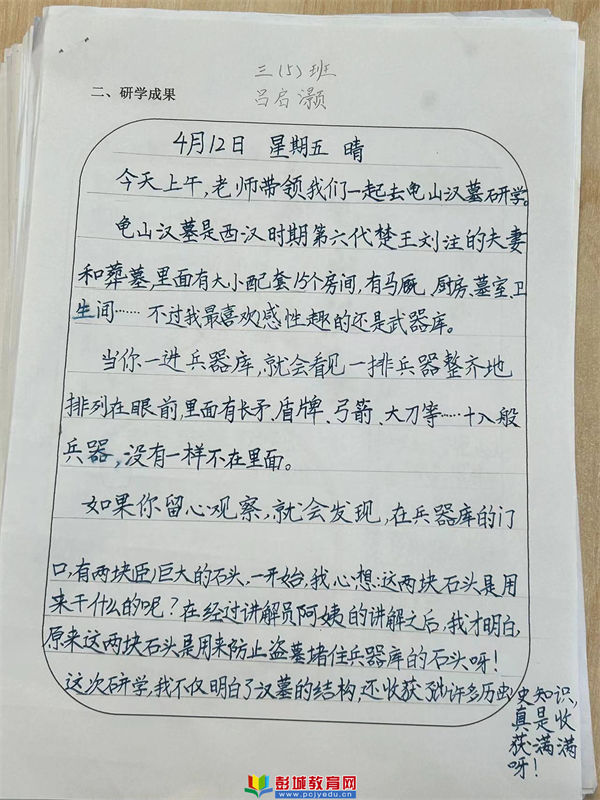 三(5)班
二、研学成果
吕启灏
4月12日 星期五 晴
今天上午,老师带领我们一起去龟山汉墓研学。
龟山汉墓是西汉时期第六代楚王刘注的夫妻
和葬墓,里面有大小配套15个房间,有马厩、厨房、墓室、卫
生间……不过我最喜欢感性趣的还是武器库。
当你一进兵器库,就会看见一排兵器整齐地
排列在眼前,里面有长矛、盾牌、弓箭、大刀等……十八般
兵器,没有一样不在里面。
如果你留心观察,就会发现,在兵器库的门
口,有两块臣巨大的石头,一开始,我心想:这两块石头是用
来干什么的呢?在经过讲解员阿姨的讲解之后,我才明白,
原来这两块石头是用来防止盗墓堵住兵器库的石头呀!
这次研学,我不仅明白了汉墓的结构,还收获了许多历史知识,
真是收
获满满
呀!
彭城教育网
www.pcjyedu.cn